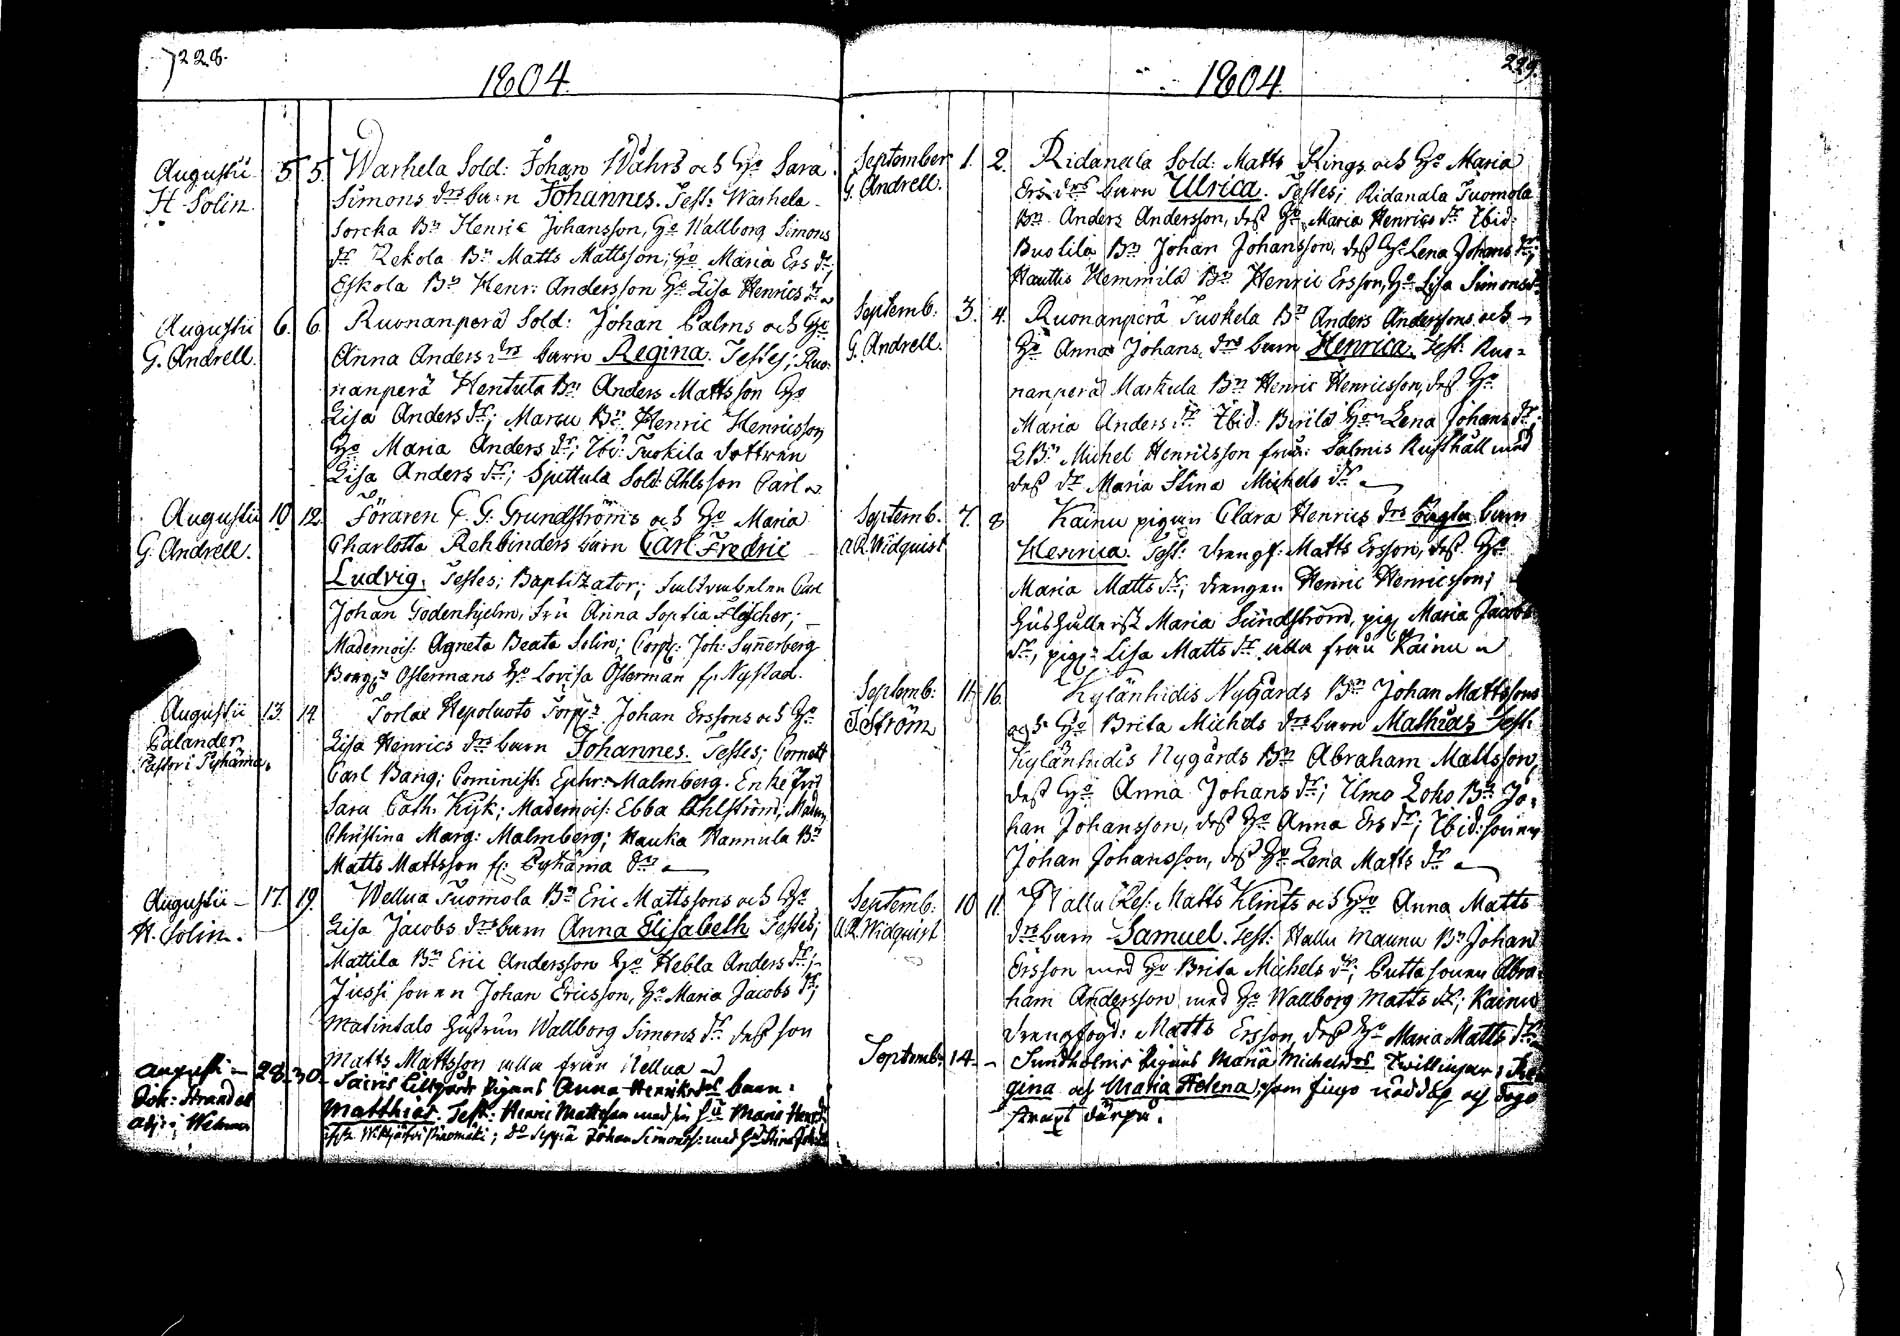 228.
1804.
Augustii 5. 5. Warhela Sold: Johan Währs och Ho Sara
H Solin. Simons drs barn Johannes. Test: Warhela
Sorcka Bn Henric Johansson, Ho Wallborg Simons
dr Rekola Bn Matts Mattsson; Ho Maria Ers dr;
Eskola Bn Henr: Andersson Ho Lisa Henrics dr
Augustii 6. 6. Ruonanperä Sold: Johan Palms och Ho
G. Andrell. Anna Anders drs barn Regina. Testes; Ruo-
nanperä Hentula Bn Anders Mattsson Ho
Lisa Anders dr; Marcu Bn Henric Henricsson
Ho Maria Anders dr; Ibid: Tuokila dottren
Lisa Anders dr; Spittula Sold: Ahlsson Carl
Augustii 10 12. Föraren C. G. Grundströms och Ho Maria
G. Andrell. Charlotta Rehbinders barn Carl Fredric
Ludvig. Testes; Baptizator; Carl
Johan Godenhjelm, Fru Anna Sophia Fleischer;
Mademois: Agneta Beata Solin; Corpr: Joh: Synnerberg
Borgrs Ostermans Ho Lovisa Österman fr. Nystad.
Augustii 13. 14. Torlax Hepoluoto Torprs Johan Erssons och Ho
Calander Lisa Henrics drs barn Johannes. Testes; Cornett
Pastor i Pyhäma. Carl Bang; Cominist: Ephr: Malmberg. Enke Fru
Sara Cath. Kyk; Mademois: Ebba Ahlström; Madm
Christina Marg: Malmberg; Hauka Hannula Bn
Matts Mattsson fr. Pyhäma
Augustii 17. 19. Wellua Tuomola Bn Eric Mattssons och Ho
H. Solin. Lisa Jacobs drs barn Anna Elisabeth Testes;
Mattila Bn Eric Andersson Ho Hebla Anders dr;
Jussi sonen Johan Ericsson, Ho Maria Jacobs dr;
Matintalo Hustrun Wallborg Simons dr dess son
Matts Mattsson alla från Wellua
Augusti 28. 30. Sairis Lillgårds Pigans Anna Henriksdrs barn:
Joh: Strandel Matthias. Test: Henric Mattsson med sin hu Maria Henrdr
adj: i Wehmo Johan Simonss: med Hu Stina
229.
1804.
September 1. 2. Ridanala Sold: Matts Rings och Ho Maria
G. Andrell. Ers drs barn Ulrica. Testes; Ridanala Tuomola
Bn Anders Andersson, dess Ho Maria Henrics dr Ibid:
Buolila Bn Johan Johansson, dess Ho Lena Johans dr;
Hauttis Hemmilä Bn Henric Ersson, Ho Lisa Simons dr
Septemb: 3. 4. Ruonanperä Tuokela Bn Anders Anderssons och
G. Andrell. Ho Anna Johans drs barn Henrica. Test: Ruo-
nanperä Markula Bn Henric Henricsson, dess Ho
Maria Anders dr Ibid: Birilä Hon Lena Johans dr;
Bn Michel Henricsson från: Salmis Rusthåll med
dess dr Maria Stina Michels dr
Septemb. 7. 8. Kainu pigan Clara Henrics drs oägta barn
A R. Widquist Henrica. Test: drengf: Matts Ersson, dess Ho
Maria Matts dr; drengen Henric Henricsson;
Hushållersk Maria Sundström, pig: Maria Jacobs
dr, pig: Lisa Matts dr alla från Kainu
Septemb: 11. 16. Kylänhidis Nygårds Bn Johan Mattssons
J. Ström och Ho Brita Michels drs barn Mathias Test:
Kylänhidis Nygårds Bn Abraham Mattsson,
dess Ho Anna Johans dr; Elmo Loko Bn Jo-
han Johansson, dess Ho Anna Ers dr; Ibid: sonen
Johan Johansson, dess Ho Lena Matts dr
Septemb: 10 11. Hallu Res: Matts Klints och Ho Anna Matts
A.R. Widquist drs barn Samuel. Test: Hallu Maunu Bn Johan
Ersson med Ho Brita Michels dr; Putta sonen Abra-
ham Andersson med Ho Wallborg Matts dr; Kainu
drengfogd: Matts Ersson, dess Ho Maria Matts dr:
Septemb: 14 - Sundholms Pigans Maria Michelsdrs Twillingar: Re-
gina och Maria Helena; som fingo nöddop och dogo
straxt därpå.